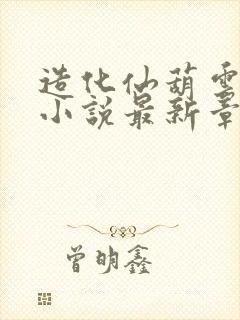 造化仙葫電
小說最新章
曾明鑫